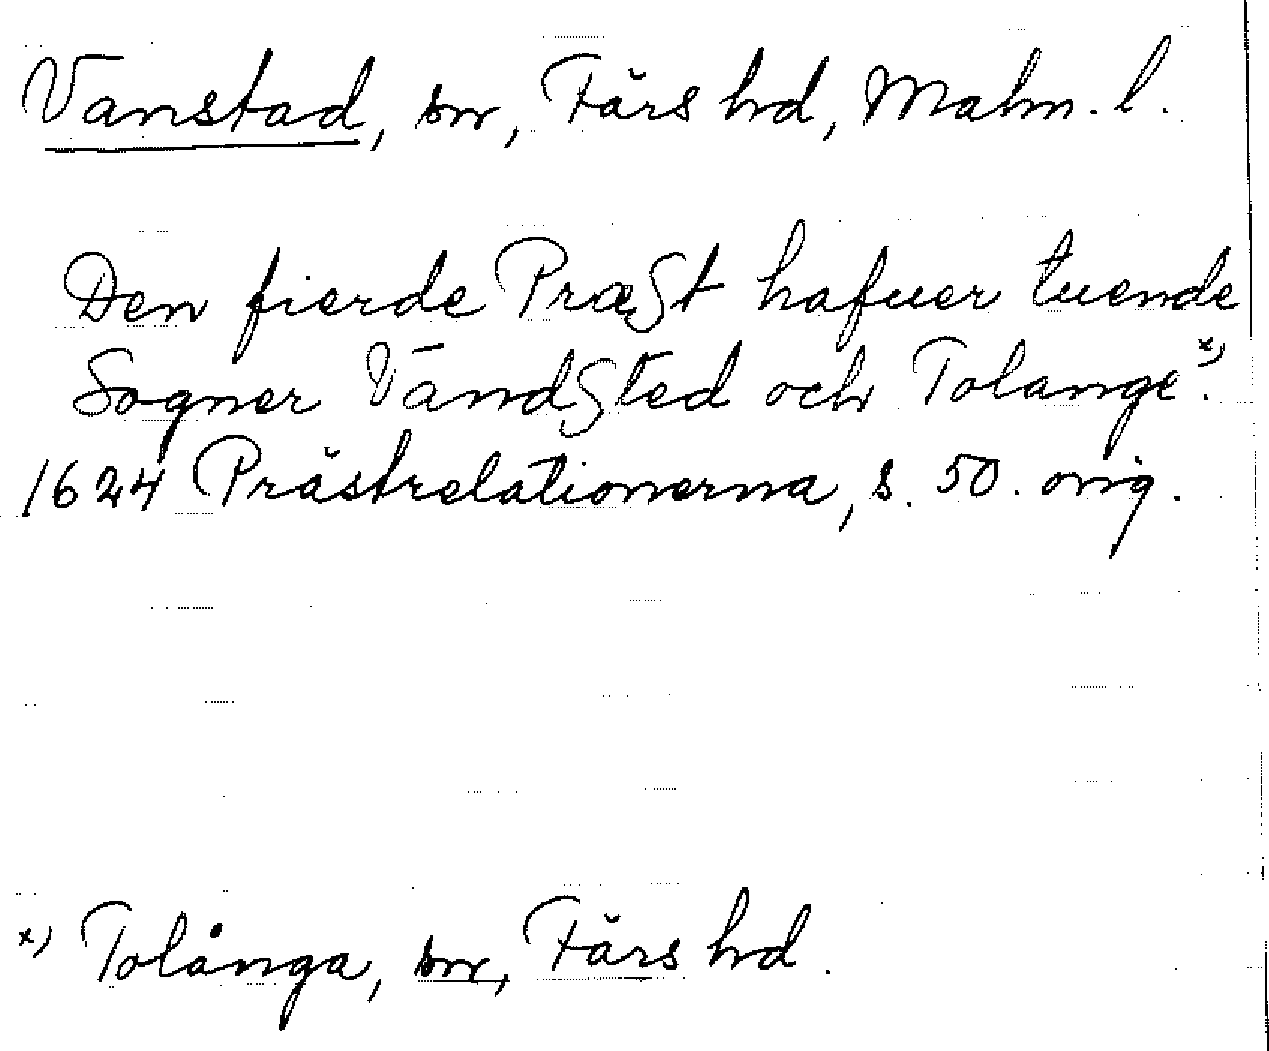 Vanstad, sn, Färs hd, Malm. l.
Den fierde Præst hafuer tuende
Sogner Vandsted och Tolange x).
1624 Prästrelationerna, s. 50. orig.
x) Tolånga, sn, Färs hd.